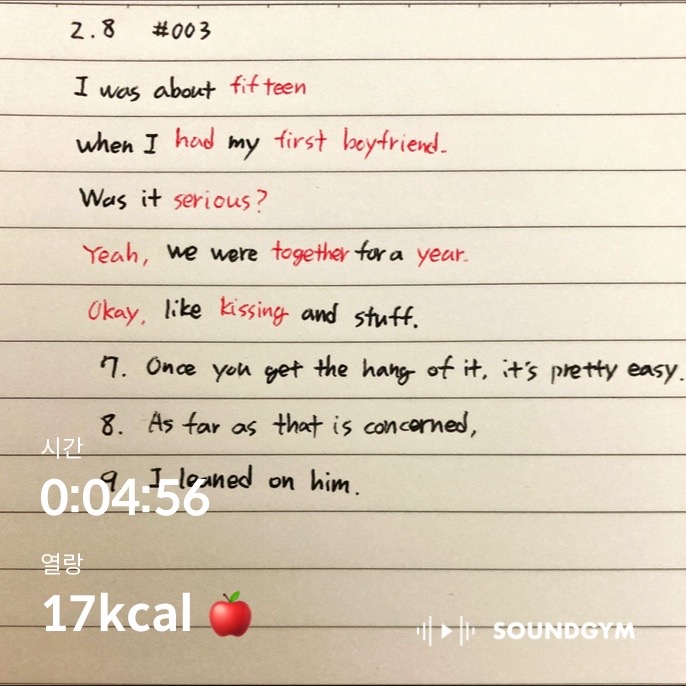 2.8 #003
I was about fifteen
when I had my first boyfriend.
Was it serious?
Yeah, we were together for a year.
Okay, like kissing and stuff.
7. Once you get the hang of it, it's pretty easy.
8. As far as that is concerned,
9. I leaned on him.
시간
0:04:56
열량
17kcal
SOUNDGYM